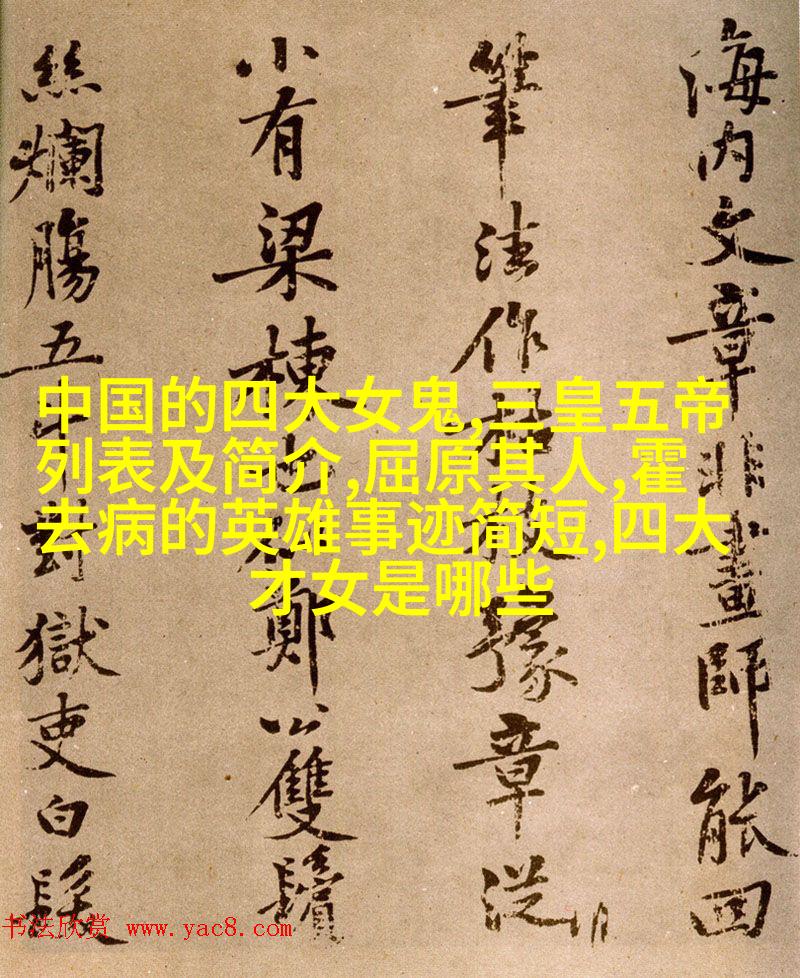 海内文章非畫師能回
筆法作豫章從
小有梁棟也鄭公雙鬢
絲爛腸五斗對獄吏白髮
中国的四大女鬼,三皇五帝
列表及简介,屈原其人,霍
去病的英雄事迹简短,四大
才女是哪些
书法欣赏 www.yac8.com